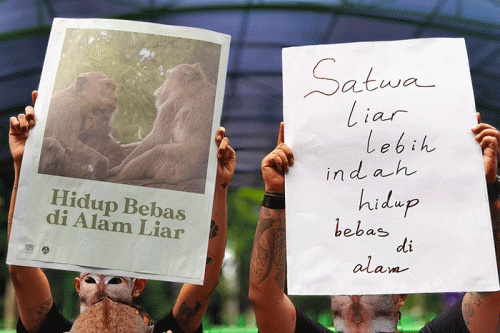 Hidup Bebas
di Alam Liar
Satwa
liar
lebih
indah
hidup
bebas
di
alam